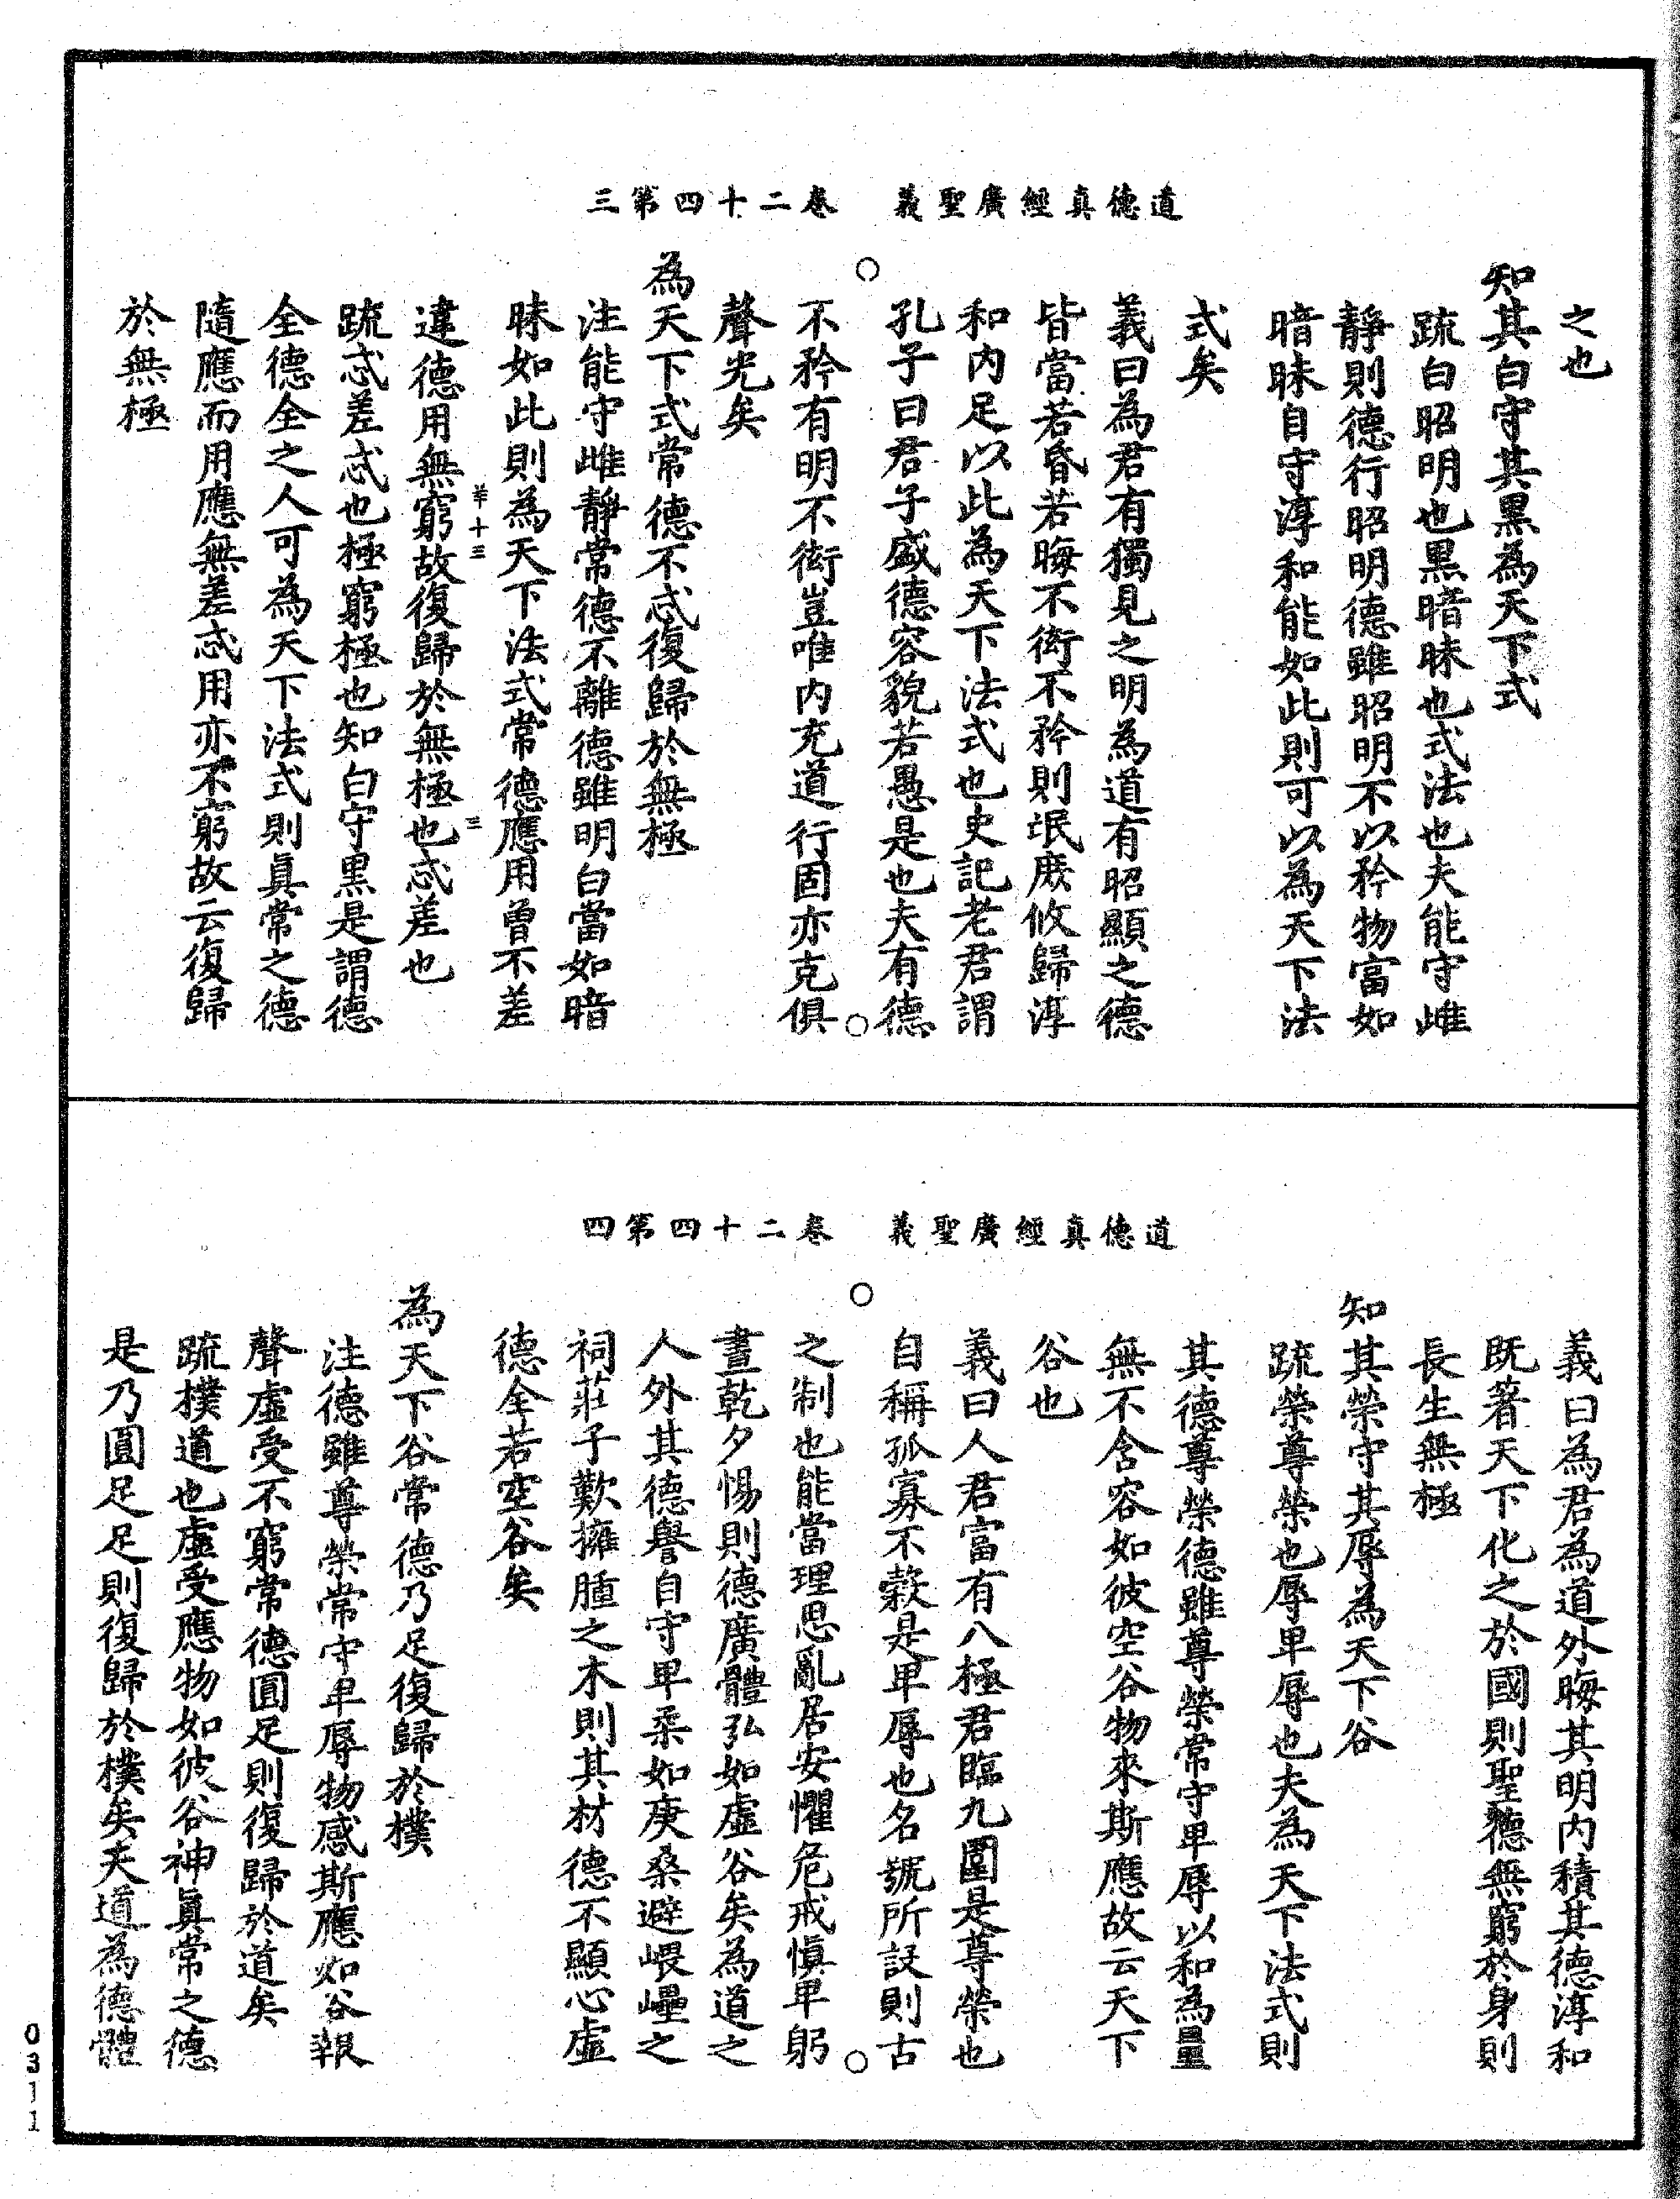 道德真經廣聖義　卷二十四第三
之也
知其白守其黑為天下式
疏白昭明也黑暗昧也式法也夫能守雌
靜則德行昭明德雖昭明不以矜物富如
暗昧自守淳和能如此則可以為天下法
式矣
義曰為君有獨見之明為道有昭顯之德
皆當若昏若晦不衒不矜則氓庶攸歸淳
和內足以此為天下法式也史記老君謂
孔子曰君子盛德容貌若愚是也夫有德
不矜有明不衒豈唯內充道行固亦克俱
聲光矣
為天下式常德不忒復歸於無極
注能守雌靜常德不離德雖明白當如暗
昧如此則為天下法式常德應用曾不差
羊十三　三
違德用無窮故復歸於無極也忒差也
疏忒差忒也極窮極也知白守黑是謂德
全德全之人可為天下法式則眞常之德
隨應而用應無差忒用亦不窮故云復歸
於無極
道德真經廣聖義　卷二十四第四
義曰為君為道外晦其明內積其德淳和
既著天下化之於國則聖德無窮於身則
長生無極
知其榮守其辱為天下谷
疏榮尊榮也辱卑辱也夫為天下法式則
其德尊榮德雖尊榮常守卑辱以和為量
無不含容如彼空谷物來斯應故云天下
谷也
義曰人君富有八極君臨九圍是尊榮也
自稱孤寡不榖是卑辱也名號所設則古
之制也能當理思亂居安懼危戒愼卑躬
晝乾夕惕則德廣體弘如虛谷矣為道之
人外其德譽自守卑柔如庚桑避嵔壘之
祠莊子歎擁腫之木則其材德不顯心虛
德全若空谷矣
為天下谷常德乃足復歸於樸
注德雖尊榮常守卑辱物感斯應如谷報
聲虛受不窮常德圓足則復歸於道矣
疏樸道也虛受應物如彼谷神眞常之德
是乃圓足足則復歸於樸矣夫道為德體
0311